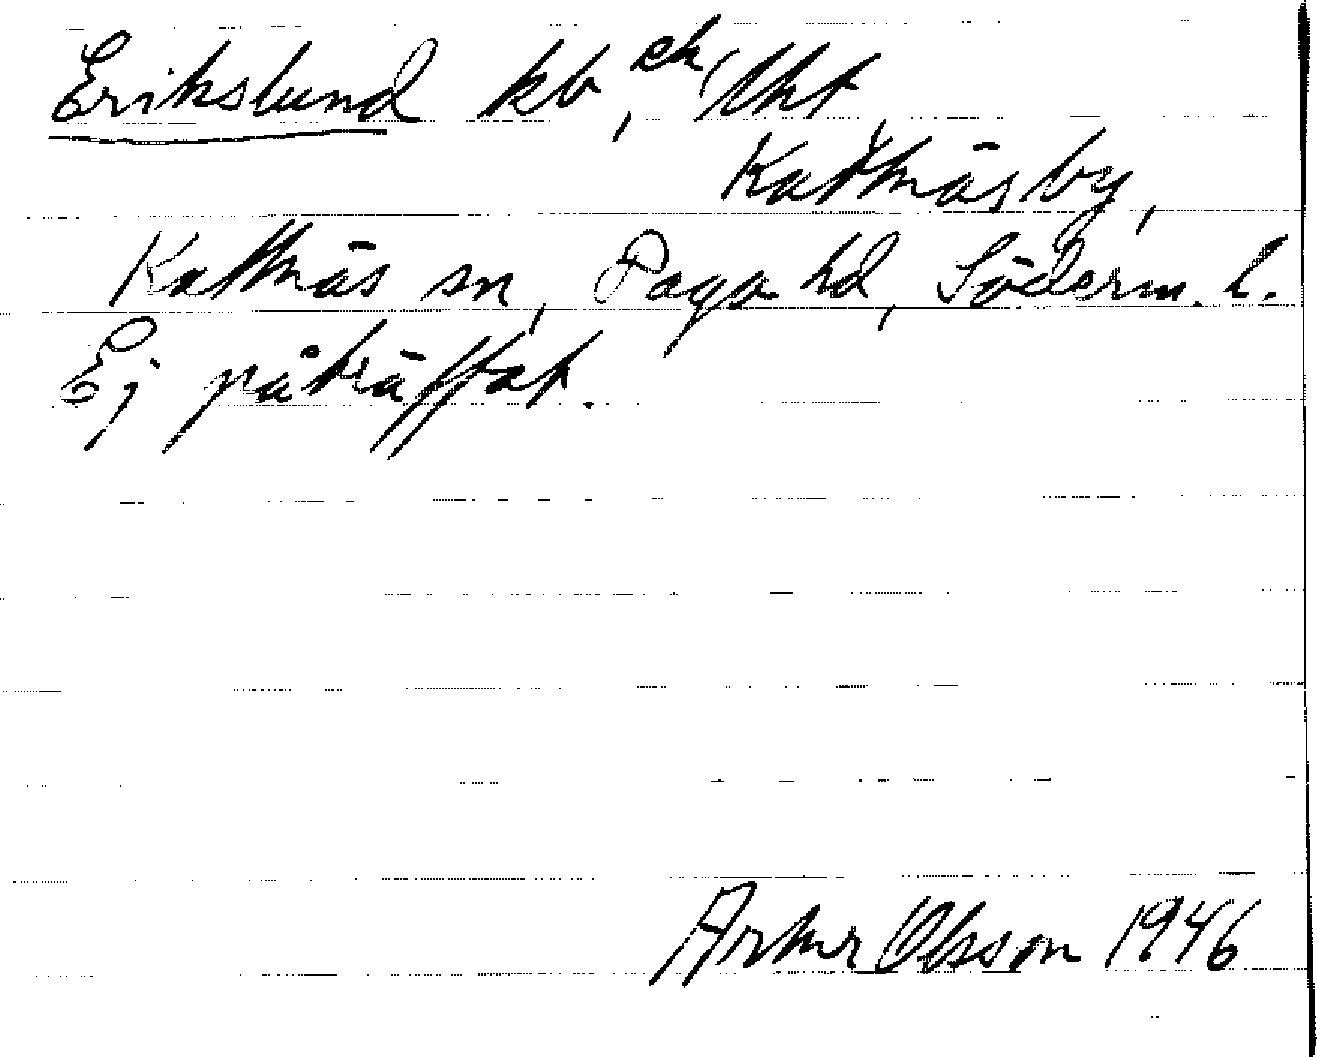 Erikslund kb, ek, tht
Kattnäs by,
Kattnäs sn, Daga hd, Söderm. l.
Ej påträffat.
Artur Olsson 1946